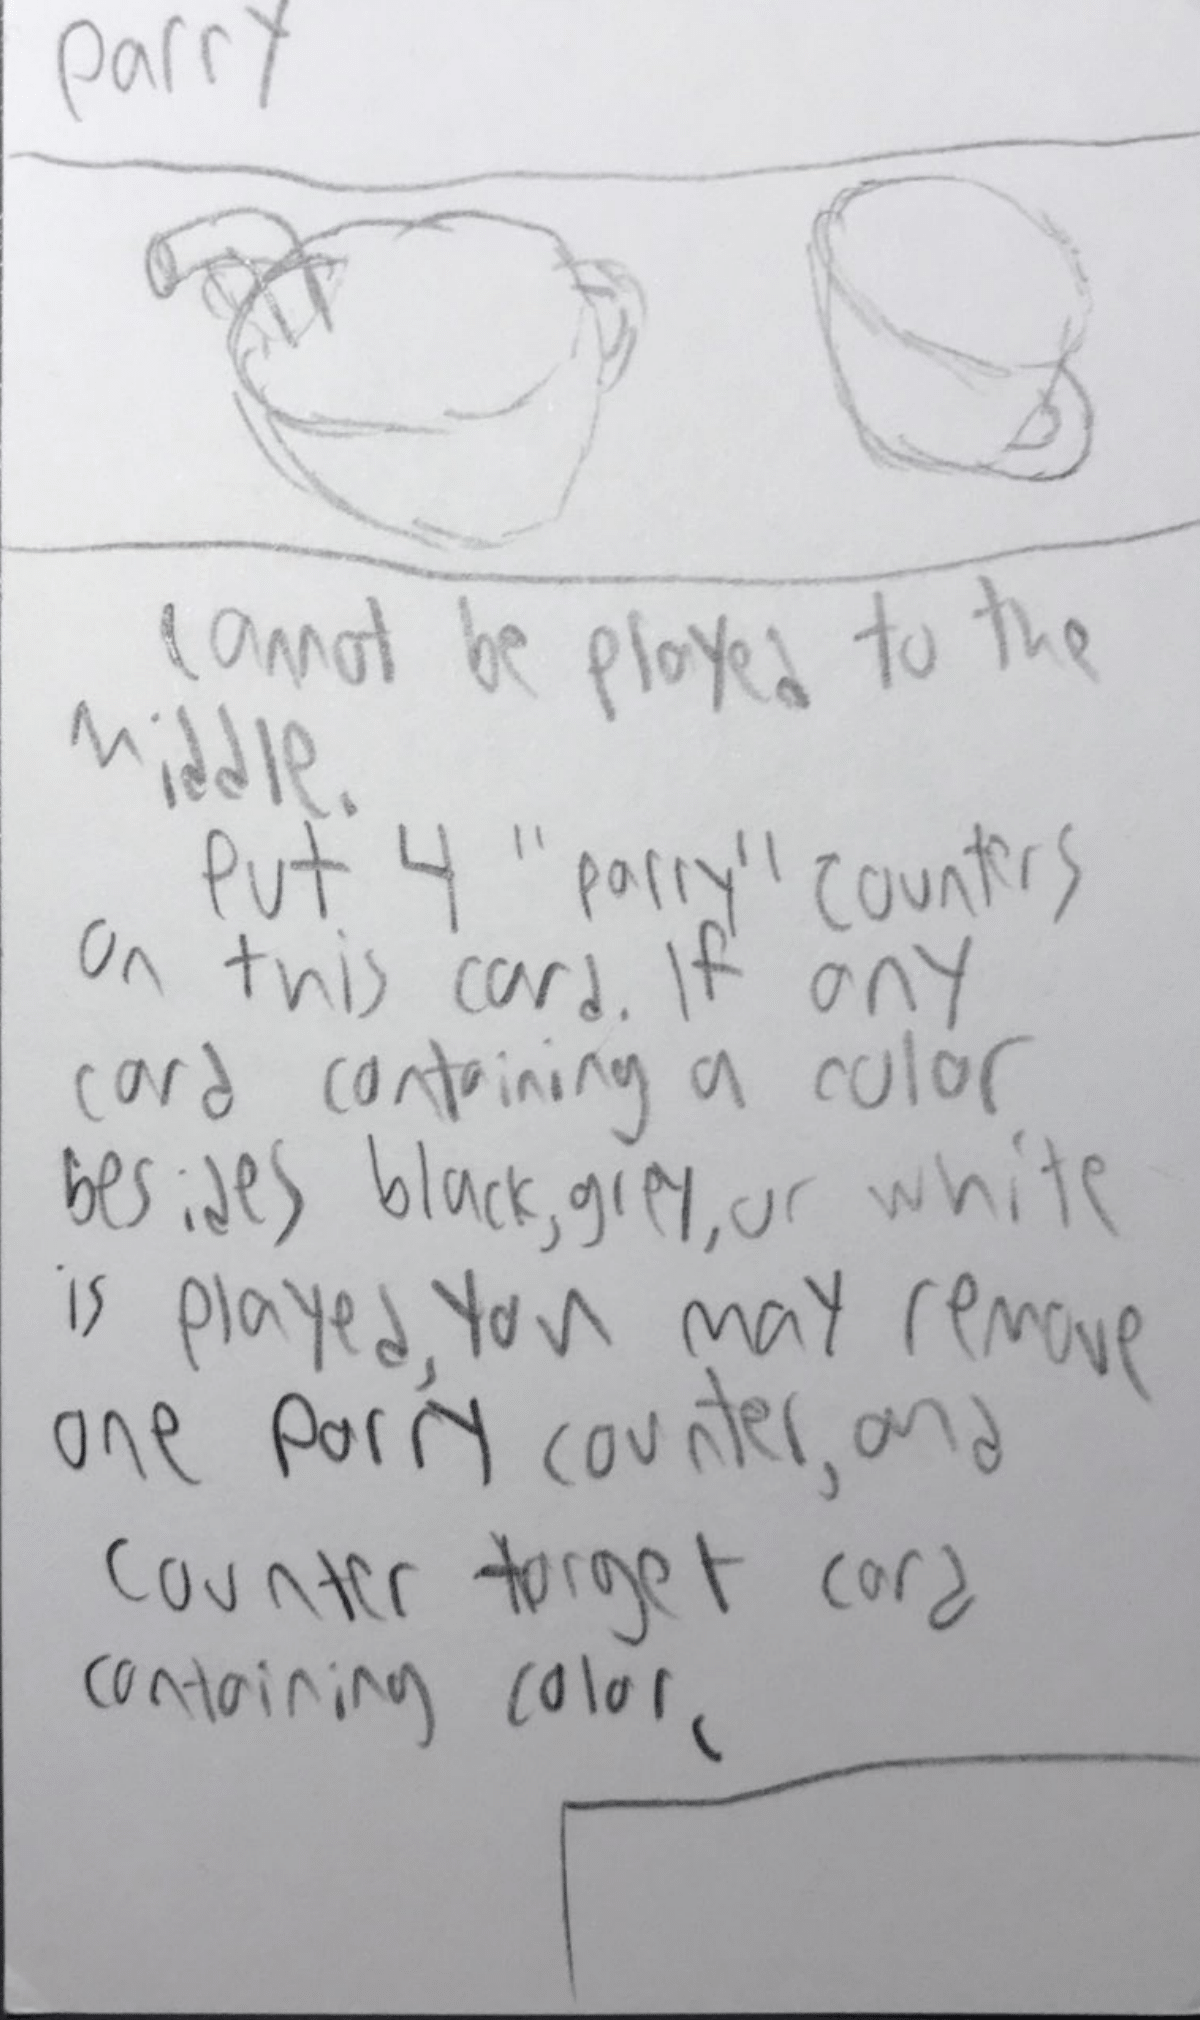 parry
cannot be played to the
middle.
Put 4 "parry" counters
on this card. If any
card containing a color
besides black, grey, or white
is played, you may remove
one Parry counter, and
counter target card
containing color.